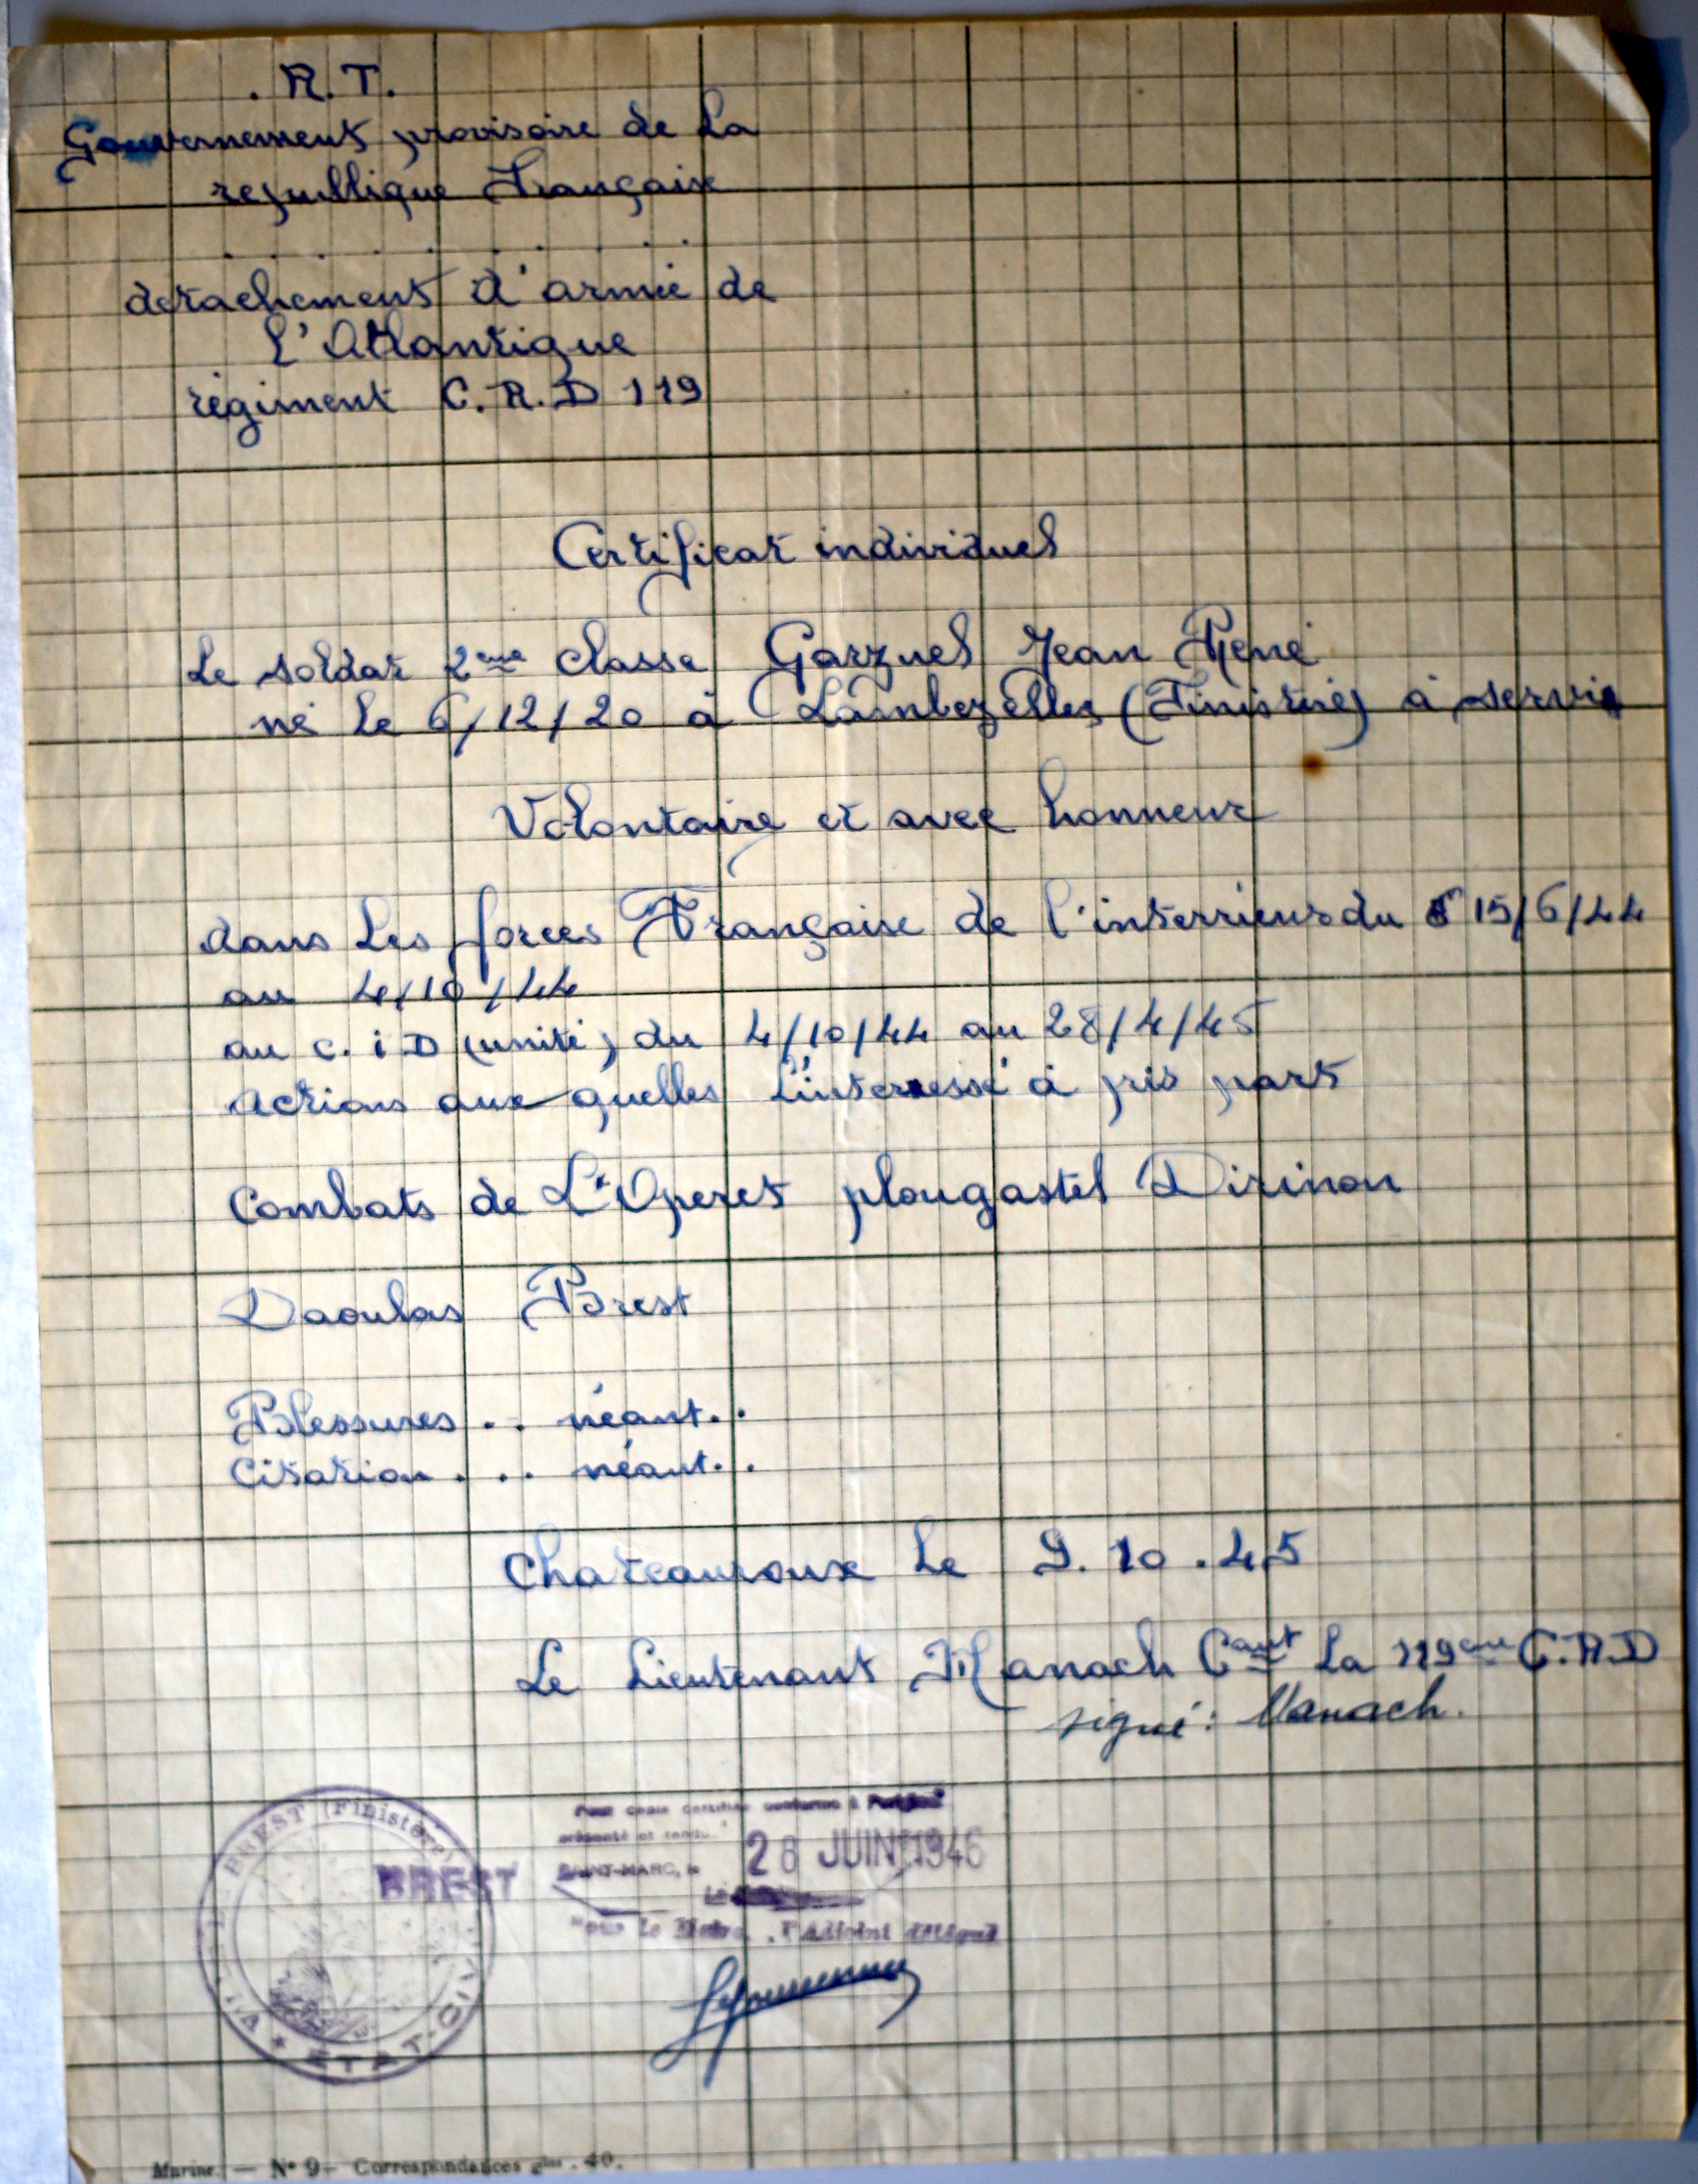 . R. T.
Gouvernement provisoire de La
republique Française
detachement d'armée de
L'Atlantique
régiment C. R. D 119
Certificat individuel
Le soldat 2eme classe Garznel Jean René
né le 6/12/20 à Lambezelleg (Finistère) à servi
Volontaire et avec honneur
dans Les forces Française de l'interrieur du 15/6/44
au 4/10/44
au c. i D (unité) du 4/10/44 au 28/4/45
actions aux quelles L'interressé à pris part
Combats de L'Operet plougastel Dirinon
Daoulas Brest
Blessures . . néant . .
Citation . . . néant . .
Chateauroux Le 9. 10 . 45
Le Lieutenant Manach Cant La 119eme C.R.D
signé : Manach.
Pour copie certifiée conforme à
présenté et rendu
SAINT-MARC, le 28 JUIN 1946
BREST
Le
Pour le Maire, l'Adjoint délégué
BREST (Finistère)
ETAT-CIVIL
Marine. — N° 9 — Correspondances gles . 40.